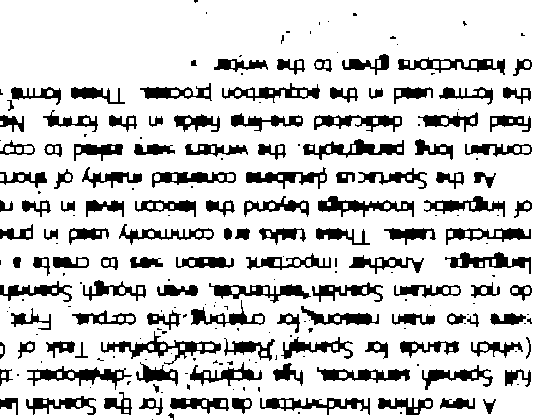 A new offline handwritten database for the Spanish
full Spanish sentences, has recently been developed:
(which stands for Spanish Restricted-domain Task of
were two main reasons for creating this corpus. First
do not contain Spanish sentences, even though Spanish
language. Another important reason was to create a
restricted tasks. These tasks are commonly used in
of linguistic knowledge beyond the lexicon level in the
As the Spartacus database consisted mainly of short
contain long paragraphs, the writers were asked to
fixed places: dedicated one-line fields in the forms.
the forms used in the acquisition process. These forms
of instructions given to the writer.